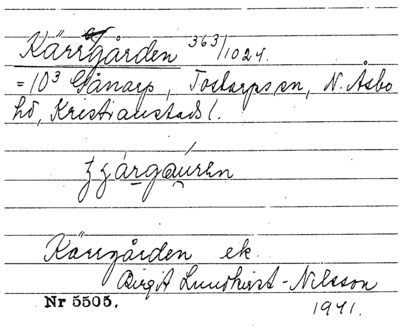 Kärrgården 363/1024.
= 10³ Gånarp, Tostarps sn, N. Åsbo
hd, Kristianstads l.
Kärrgården ek.
Birgit Lundkvist-Nilsson
Nr 5505.
1941.